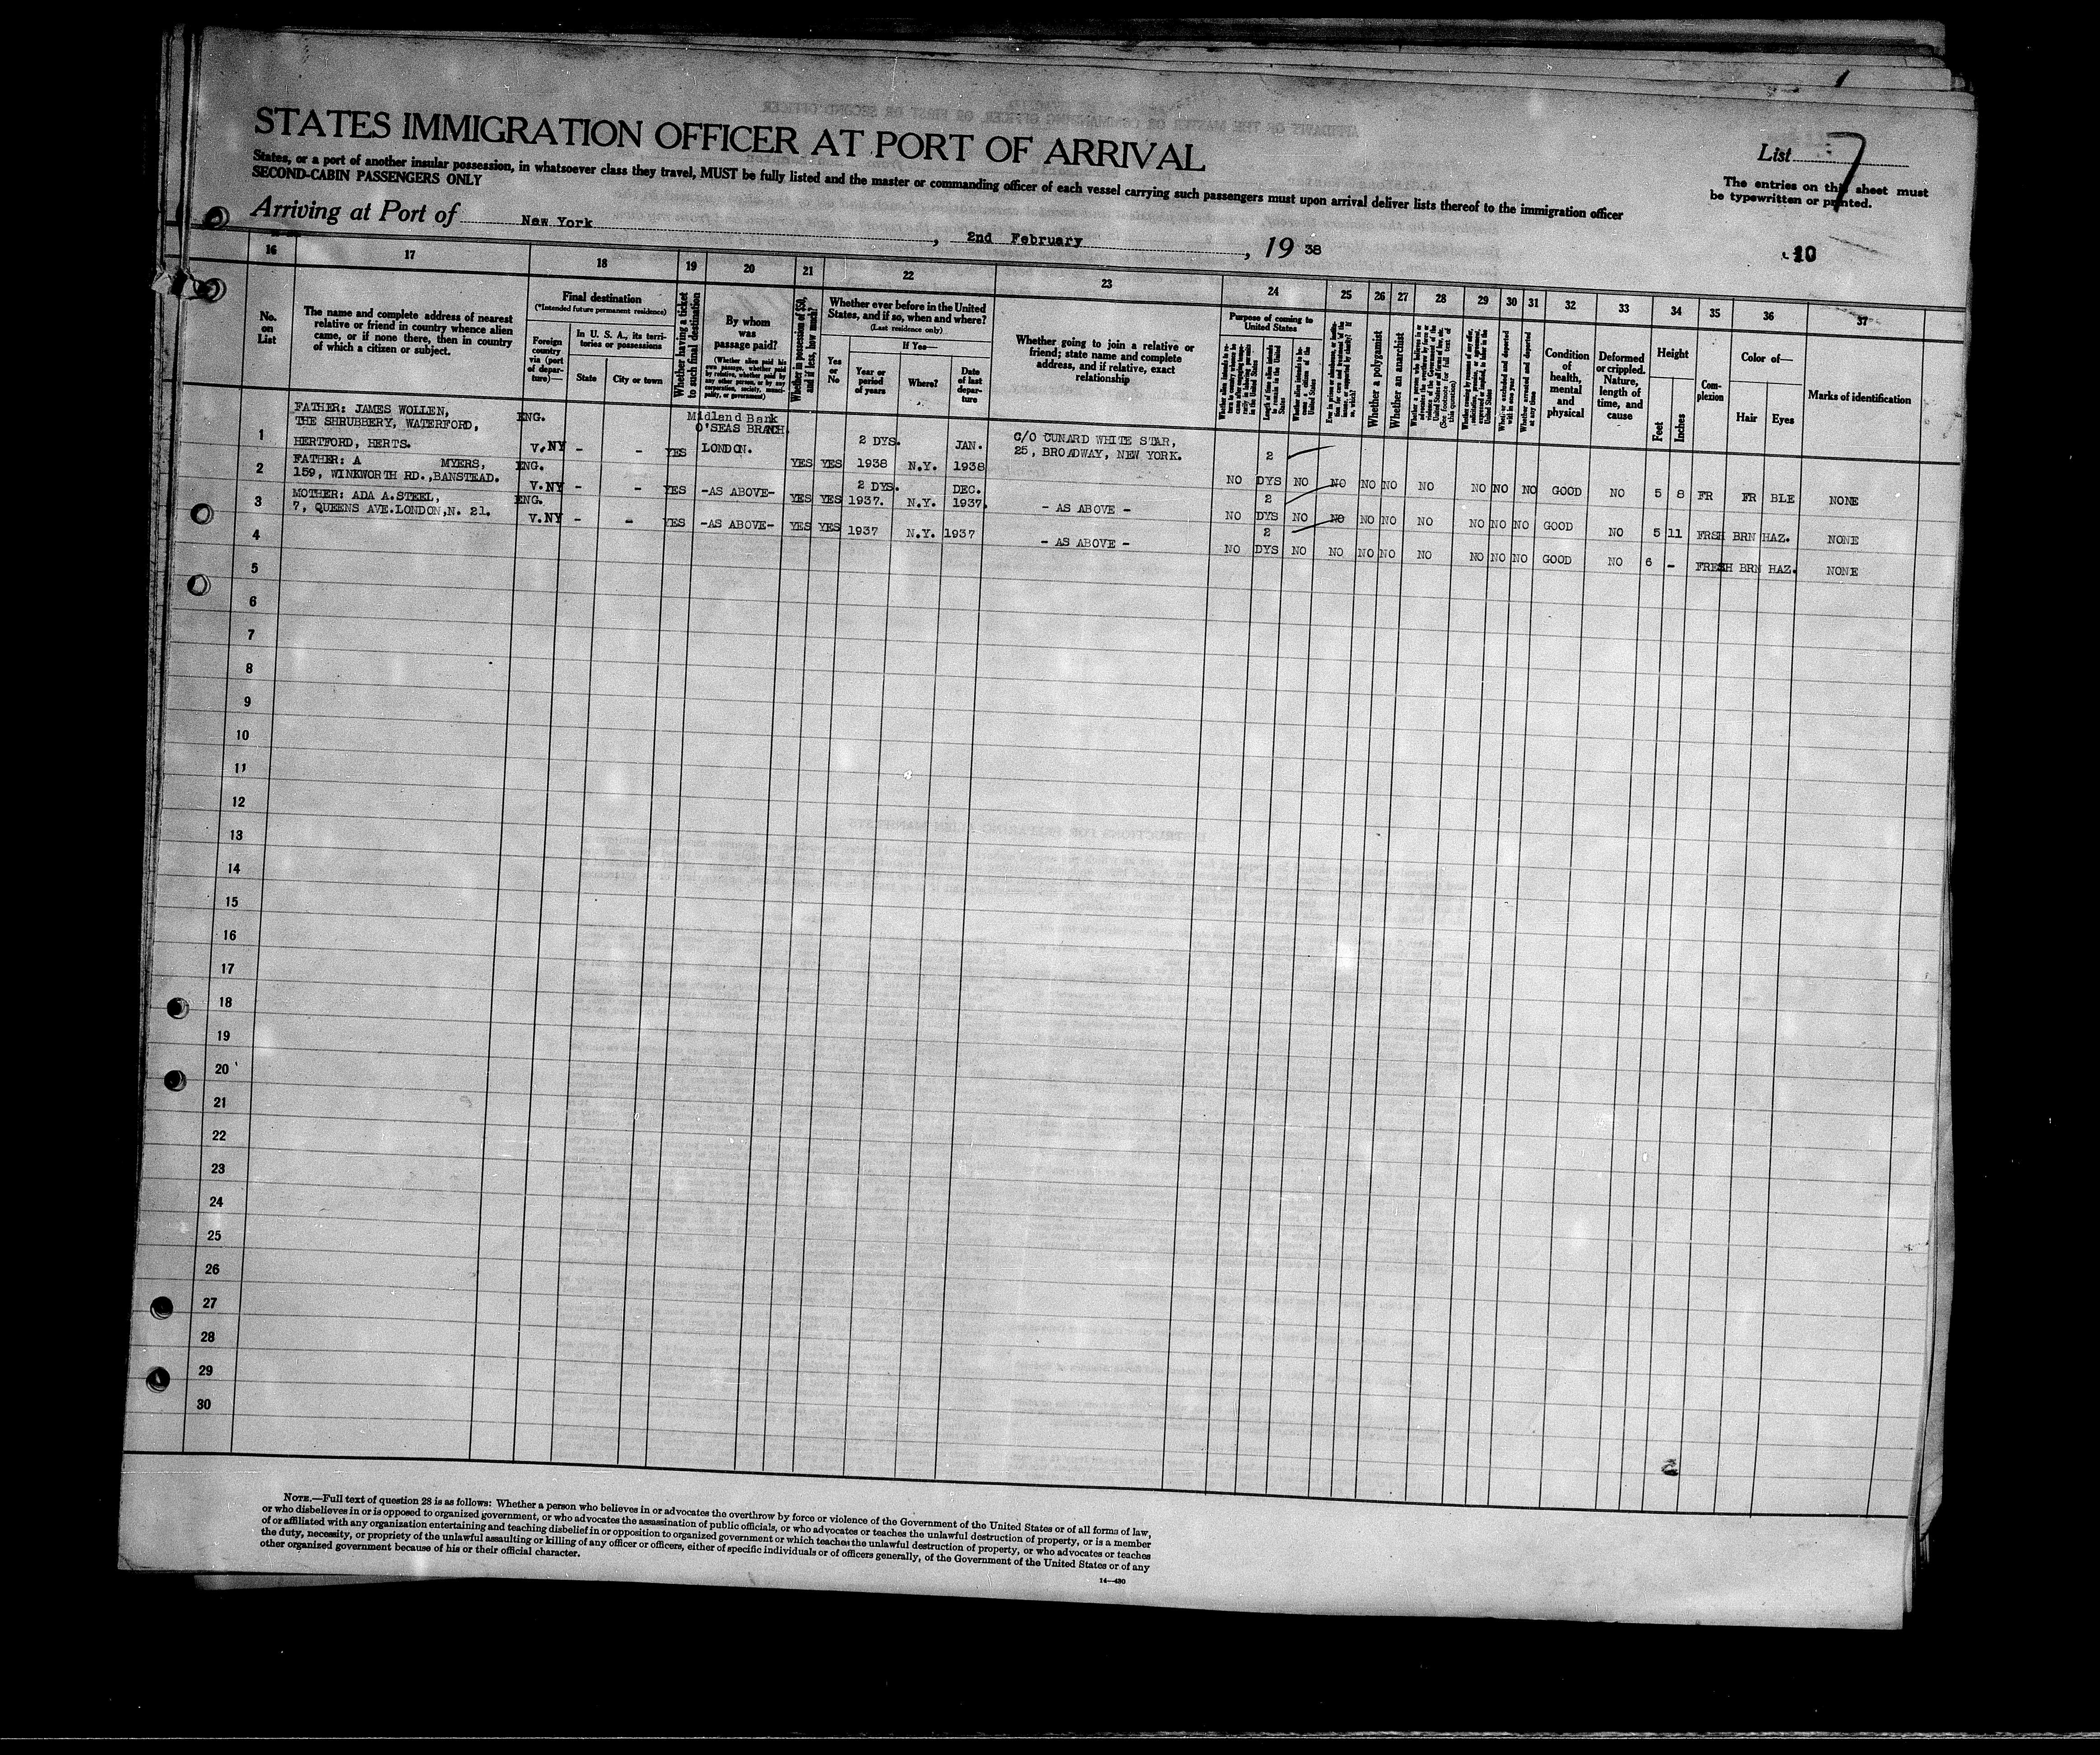 STATES IMMIGRATION OFFICER AT PORT OF ARRIVAL
States, or a port of another insular possession, in whatsoever class they travel, MUST be fully listed and the master or commanding officer of each vessel carrying such passengers must upon arrival deliver lists thereof to the immigration officer
SECOND-CABIN PASSENGERS ONLY
List 7
The entries on this sheet must
be typewritten or printed.
Arriving at Port of New York, 2nd February, 19 38
10
16 17 18 19 20 21 22 23 24 25 26 27 28 29 30 31 32 33 34 35 36 37
No. on List
The name and complete address of nearest
relative or friend in country whence alien
came, or if none there, then in country
of which a citizen or subject.
Final destination
(*Intended future permanent residence)
Foreign country via (port of departure)—
In U. S. A., its territories or possessions
State
City or town
Whether having a ticket to such final destination
By whom was passage paid?
(Whether alien paid his own passage, whether paid by relative, whether paid by any other person, or by any corporation, society, municipality, or government)
Whether in possession of $50, and if less, how much?
Whether ever before in the United
States, and if so, when and where?
(Last residence only)
Yes or No
If Yes—
Year or period of years
Where?
Date of last departure
Whether going to join a relative or
friend; state name and complete
address, and if relative, exact
relationship
Purpose of coming to United States
Length of time alien intends to remain in the United States
Whether a polygamist
Whether an anarchist
Condition of health, mental and physical
Deformed or crippled. Nature, length of time, and cause
Height
Feet
Inches
Complexion
Color of—
Hair
Eyes
Marks of identification
1 FATHER: JAMES WOLLEN,
THE SHRUBBERY, WATERFORD,
HERTFORD, HERTS. ENG. V.NY - - YES Midland Bank O'SEAS BRANCH LONDON. YES YES 2 DYS. 1938 N.Y. JAN. 1938 C/O CUNARD WHITE STAR, 25, BROADWAY, NEW YORK. NO 2 DYS NO NO NO NO NO NO NO NO GOOD NO 5 8 FR FR BLE NONE
2 FATHER: A MYERS,
159, WINKWORTH RD.,BANSTEAD. ENG. V.NY - - YES -AS ABOVE- YES YES 2 DYS. 1937. N.Y. DEC. 1937. - AS ABOVE - NO 2 DYS NO NO NO NO NO NO NO NO GOOD NO 5 11 FRSH BRN HAZ. NONE
3 MOTHER: ADA A.STEEL,
7, QUEENS AVE.LONDON,N. 21. ENG. V.NY - - YES -AS ABOVE- YES YES 1937 N.Y. 1937 - AS ABOVE - NO 2 DYS NO NO NO NO NO NO NO NO GOOD NO 6 - FRESH BRN HAZ. NONE
4
5
6
7
8
9
10
11
12
13
14
15
16
17
18
19
20
21
22
23
24
25
26
27
28
29
30
NOTE.—Full text of question 28 is as follows: Whether a person who believes in or advocates the overthrow by force or violence of the Government of the United States or of all forms of law,
or who disbelieves in or is opposed to organized government, or who advocates the assassination of public officials, or who advocates or teaches the unlawful destruction of property, or is a member
of or affiliated with any organization entertaining and teaching disbelief in or opposition to organized government or which teaches the unlawful destruction of property, or who advocates or teaches
the duty, necessity, or propriety of the unlawful assaulting or killing of any officer or officers, either of specific individuals or of officers generally, of the Government of the United States or of any
other organized government because of his or their official character.
14—430